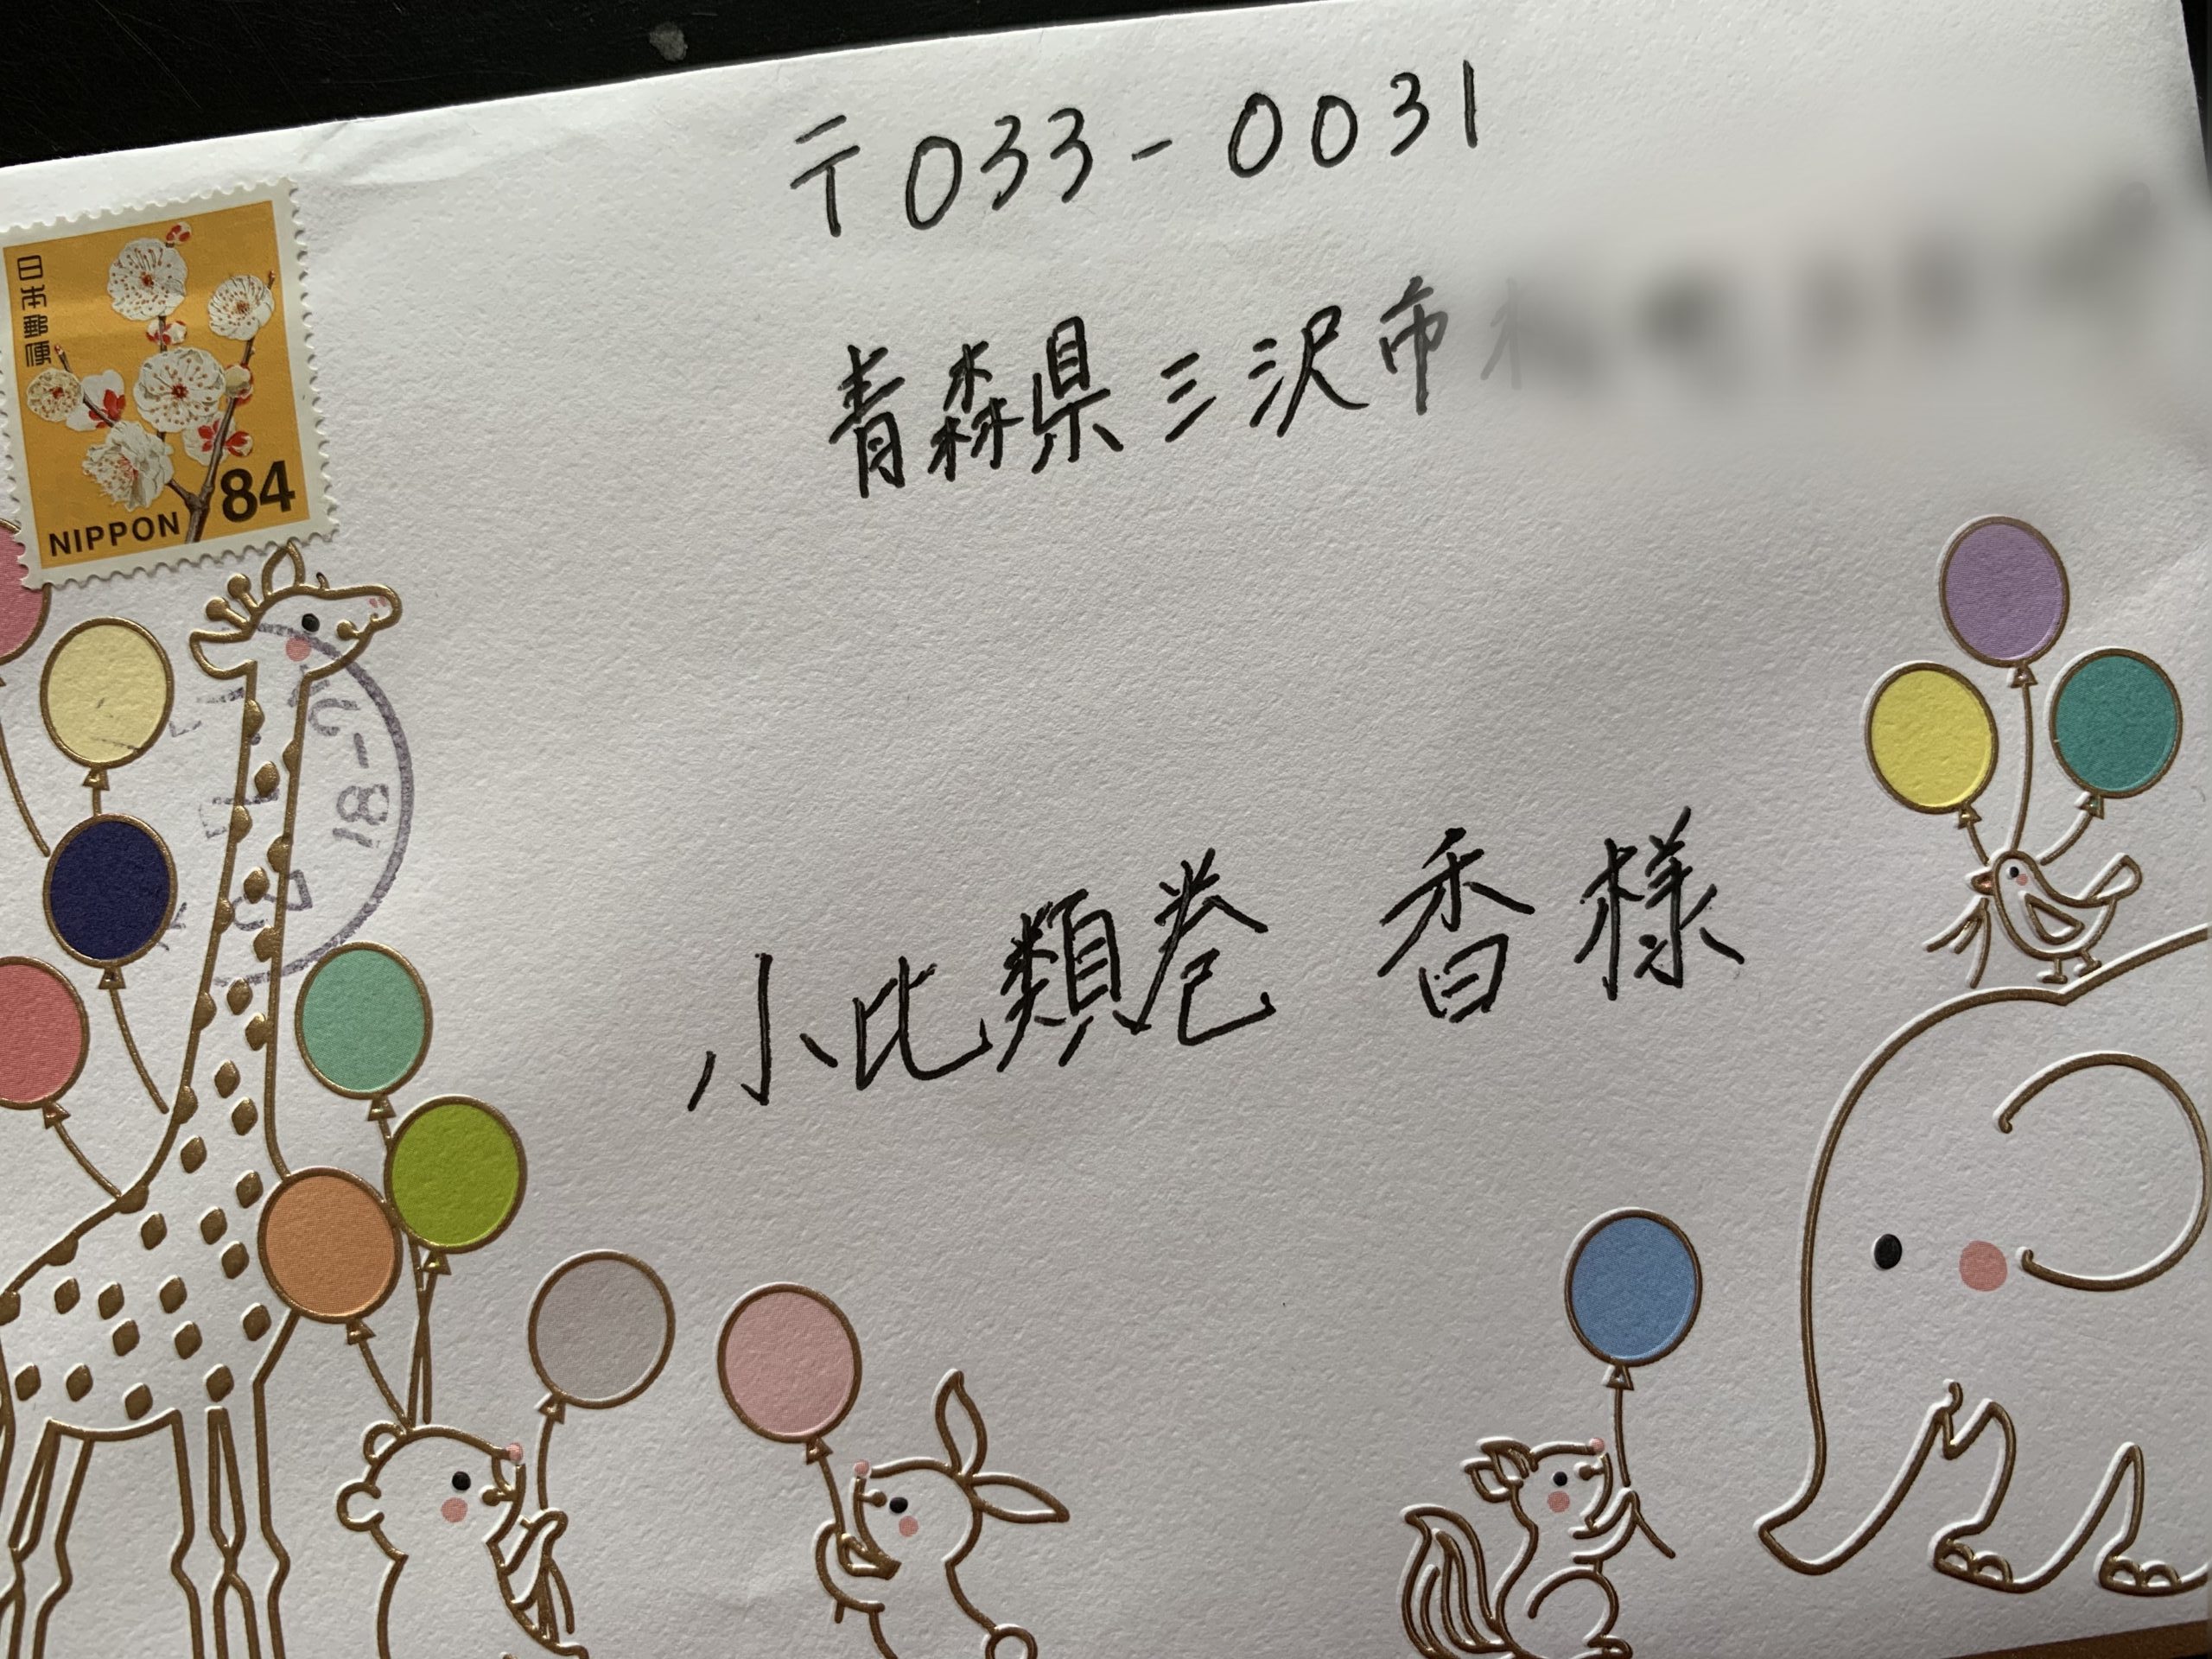 〒033-0031
青森県三沢市
日本郵便
84
NIPPON
小比類巻 香 様